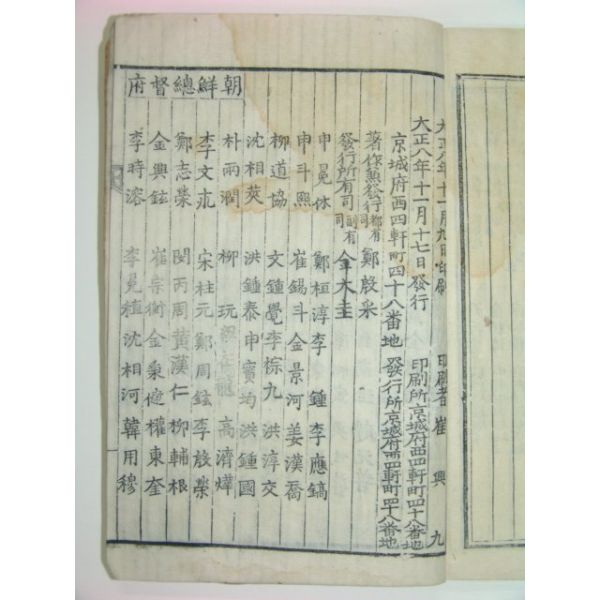 朝鮮總督府
大正八年十一月九日印刷 印刷者 崔興九
大正八年十一月十七日發行 印刷所京城府西四軒町四十八番地
京城府西四軒町四十八番地 發行所京城府西四軒町四十八番地
著作兼發行都有司 鄭殷采
發行所有司副有司 金大圭
申冕休 鄭桓淳 李鍾 李應鎬
申斗熙 崔錫斗 金景河 姜漢喬
柳道協 文鍾覺 李棕九 洪淳交
沈相莢 洪鍾泰 申寶均 洪鍾國
朴雨潤 柳玩 高濟煒
李文永 宋柱元 鄭周鉉 李殷榮
鄭志榮 閔丙周 黃漢仁 柳輔根
金興鉉 崔宗衡 金秉健 權東奎
李時溶 李冕植 沈相河 韓用穆